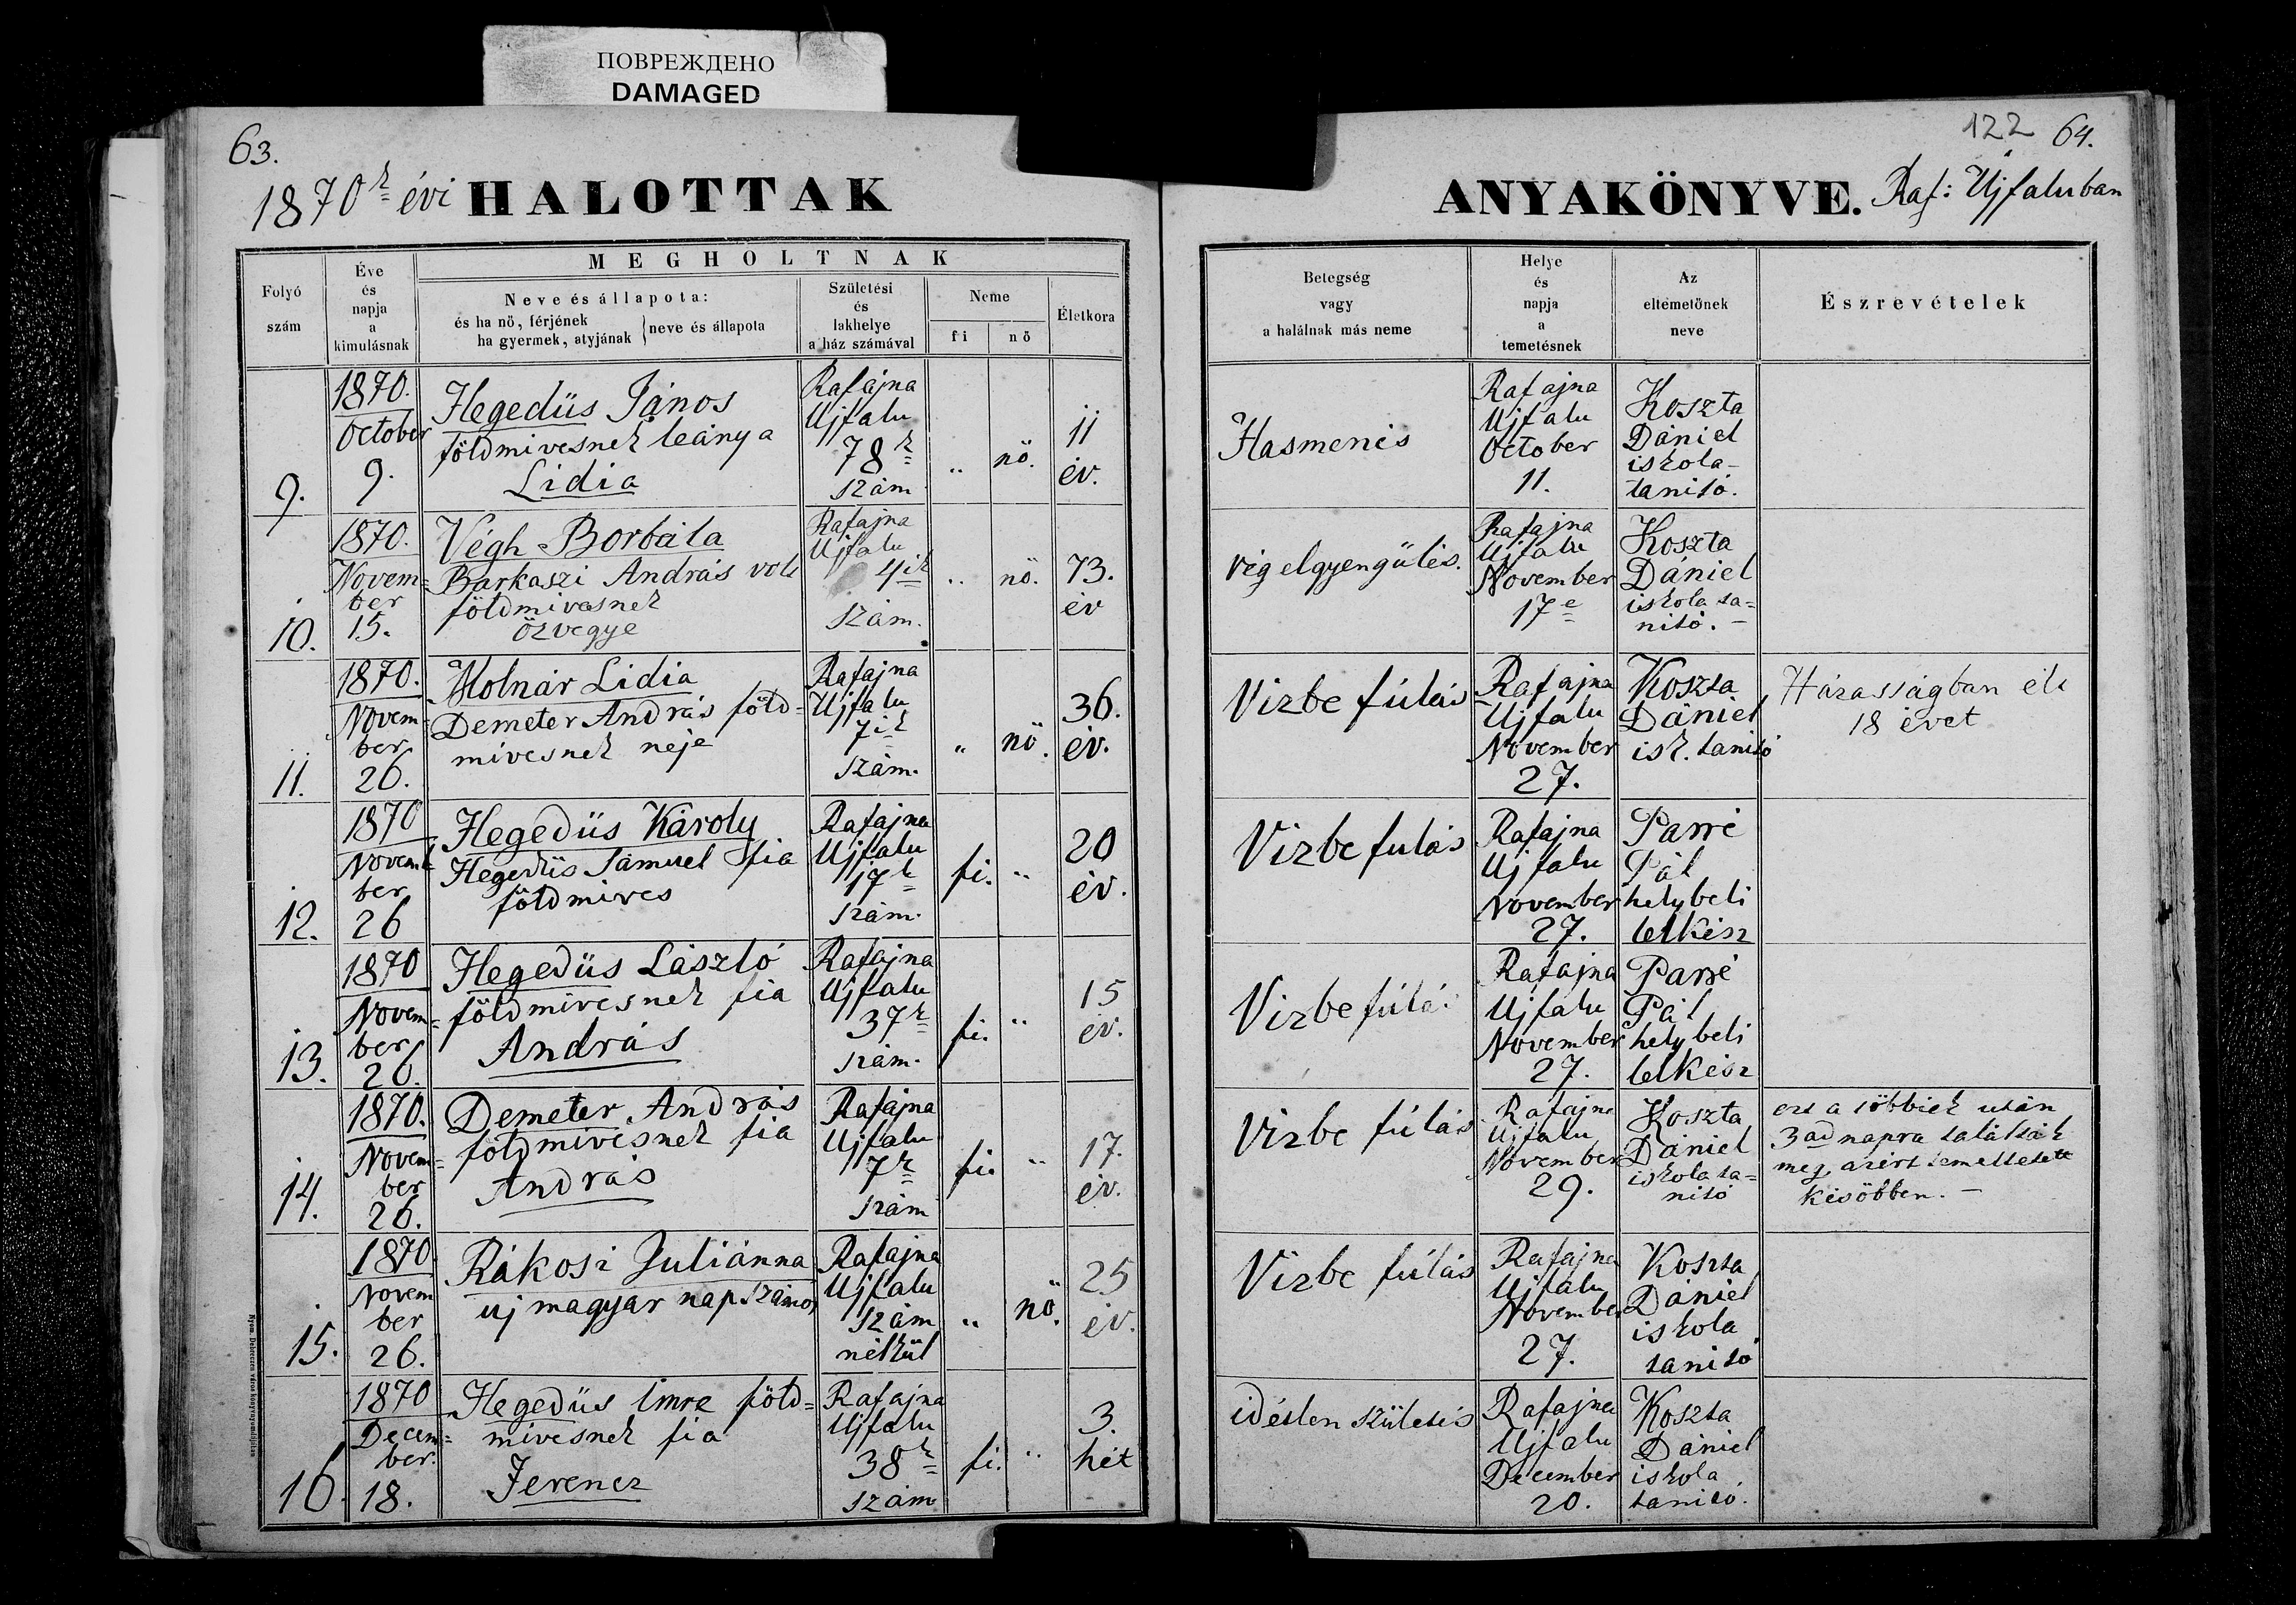 ПОВРЕЖДЕНО
DAMAGED
63.
1870k évi HALOTTAK
Folyó
szám
Éve
és
napja
a
kimulásnak
MEGHOLTNAK
Neve és állapota:
és ha nö, férjének
ha gyermek, atyjának } neve és állapota
Születési
és
lakhelye
a ház számával
Neme
fi
nö
Életkora
9.
1870.
October
9.
Hegedüs János
földmivesnek leánya
Lidia
Rafajna
Ujfalu
78k
szám
„
nö.
11
év.
10.
1870.
Novem=
ber
15.
Végh Borbála
Barkaszi András volt
földmivesnek
özvegye
Rafajna
Ujfalu
4ik
szám.
„
nö.
73.
év
11.
1870.
Novem=
ber
26.
Molnár Lidia
Demeter András föld=
mivesnek neje
Rafajna
Ujfalu
7ik
szám.
„
nö.
36.
év.
12.
1870
Novem
ber
26
Hegedüs Károly
Hegedüs Sámuel fia
földmives
Rafajna
Ujfalu
17k
szám.
fi.
„
20
év.
13.
1870
Novem=
ber
26.
Hegedüs László
földmivesnek fia
András
Rafajna
Ujfalu
37k
szám.
fi.
„
15
év.
14.
1870.
Novem=
ber
26.
Demeter András
földmivesnek fia
András
Rafajna
Ujfalu
7k
szám
fi.
„
17.
év.
15.
1870
Novem
ber
26.
Rákosi Juliánna
uj magyar napszámos
Rafajna
Ujfalu
szám
nélkül
„
nö.
25
év.
16.
1870
Decem=
ber.
18.
Hegedüs Imre föld=
mivesnek fia
Ferencz
Rafajna
Ujfalu
38k
szám
fi.
„
3.
hét
Nyom. Debreczen város könyvnyomdájában
122 64.
ANYAKÖNYVE. Raf: Ujfaluban
Betegség
vagy
a halálnak más neme
Helye
és
napja
a
temetésnek
Az
eltemetőnek
neve
Észrevételek
Hasmenés
Rafajna
Ujfalu
October
11.
Koszta
Dániel
iskola-
tanitó.
vég elgyengülés.
Rafajna
Ujfalu
November
17e
Koszta
Dániel
iskola ta=
nitó. –
Vizbe fúlás
Rafajna
Ujfalu
November
27.
Koszta
Dániel
isk. tanitó
Házasságban élt
18 évet
Vizbe fulás
Rafajna
Ujfalu
November
27.
Pál
helybeli
lelkész
Vizbe fúlás
Rafajna
Ujfalu
November
27.
Pál
helybeli
lelkész
Vizbe fúlás
Rafajna
Ujfalu
November
29.
Koszta
Dániel
iskola ta=
nitó
ezt a többiek után
3ad napra találták
meg, azért temettetett
későbben. –
Vizbe fúlás
Rafajna
Ujfalu
November
27.
Koszta
Dániel
iskola
tanitó
idétlen születés
Rafajna
Ujfalu
December
20.
Koszta
Dániel
iskola
tanitó.